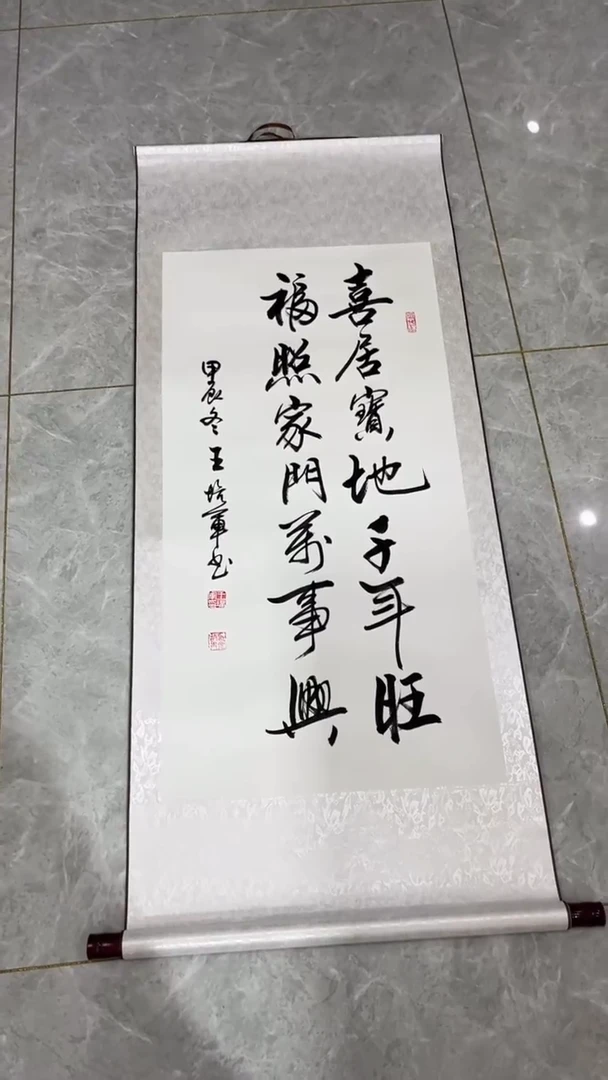 喜居寶地千年旺
福照家門萬事興
甲辰冬王培軍书